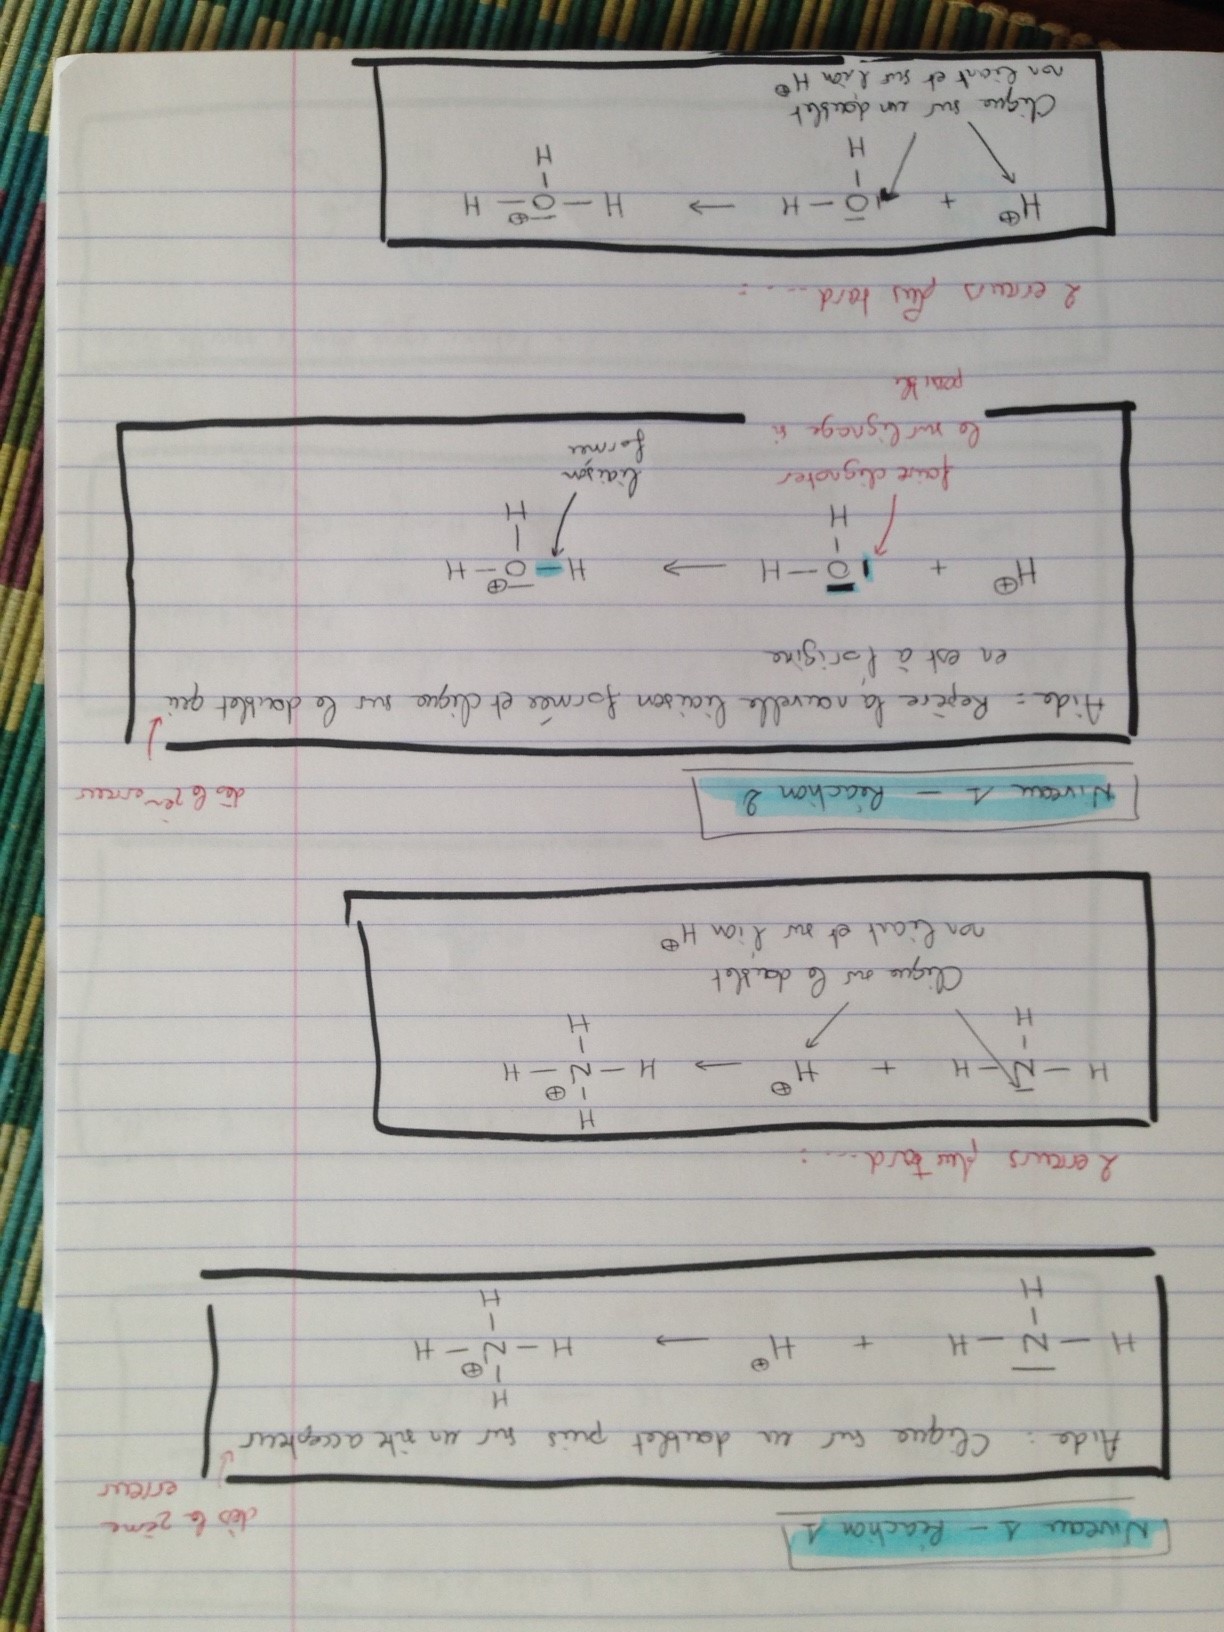 Niveau 1 - Réaction 1
dès la 2ème
erreur
Aide : Clique sur un doublet puis sur un site accepteur
H
H - N - H + H⊕ → H - N⊕ - H
H H
2 erreurs plus tard.... :
H
H - N - H + H⊕ → H - N⊕ - H
H H
Clique sur le doublet
non liant et sur l'ion H⊕
Niveau 1 - Réaction 2
dès la 2ème erreur
Aide : Repère la nouvelle liaison formée et clique sur le doublet qui
en est à l'origine
H⊕ + |O - H → H - O⊕ - H
H H
faire clignoter
le surlignage si
possible
liaison
formée
2 erreurs plus tard..... :
H⊕ + |O - H → H - O⊕ - H
H H
Clique sur un doublet
non liant et sur l'ion H⊕